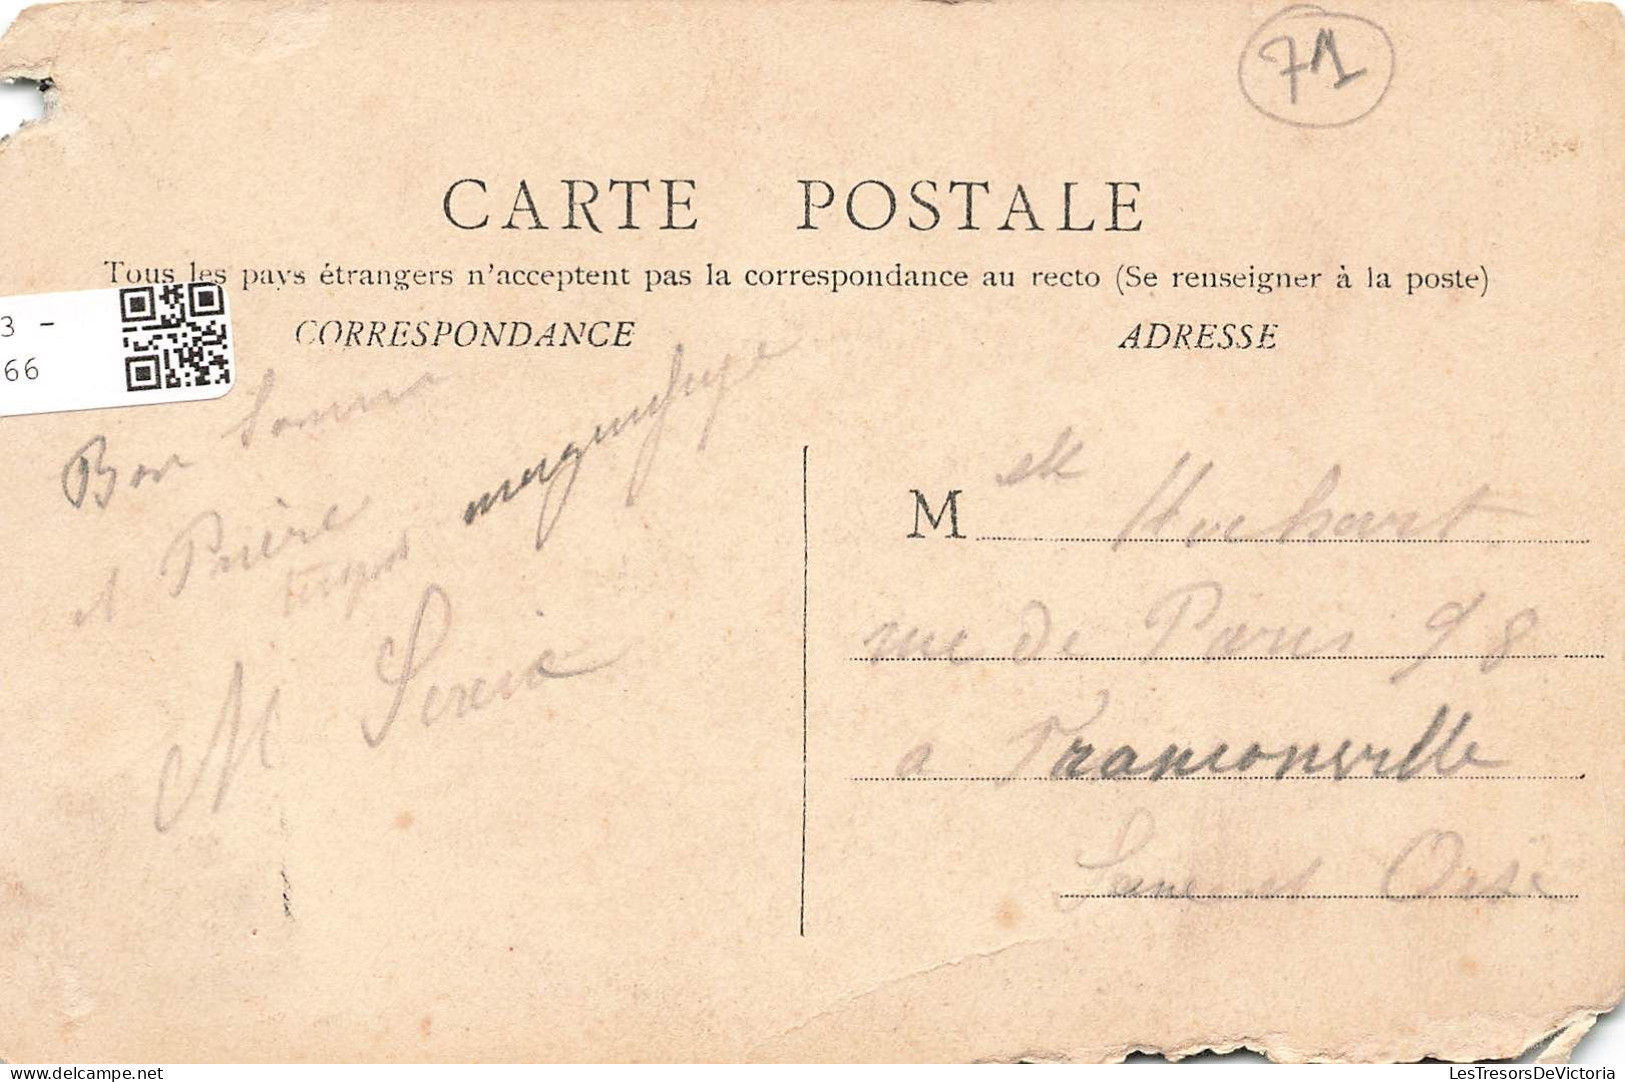 71
CARTE POSTALE
Tous les pays étrangers n'acceptent pas la correspondance au recto (Se renseigner à la poste)
3 -
66
CORRESPONDANCE
ADRESSE
Bon
et Prière
M
M elle Hochart
rue de Paris 98
a Franconville
Seine et Oise
LesTresorsDeVictoria
delcampe.net